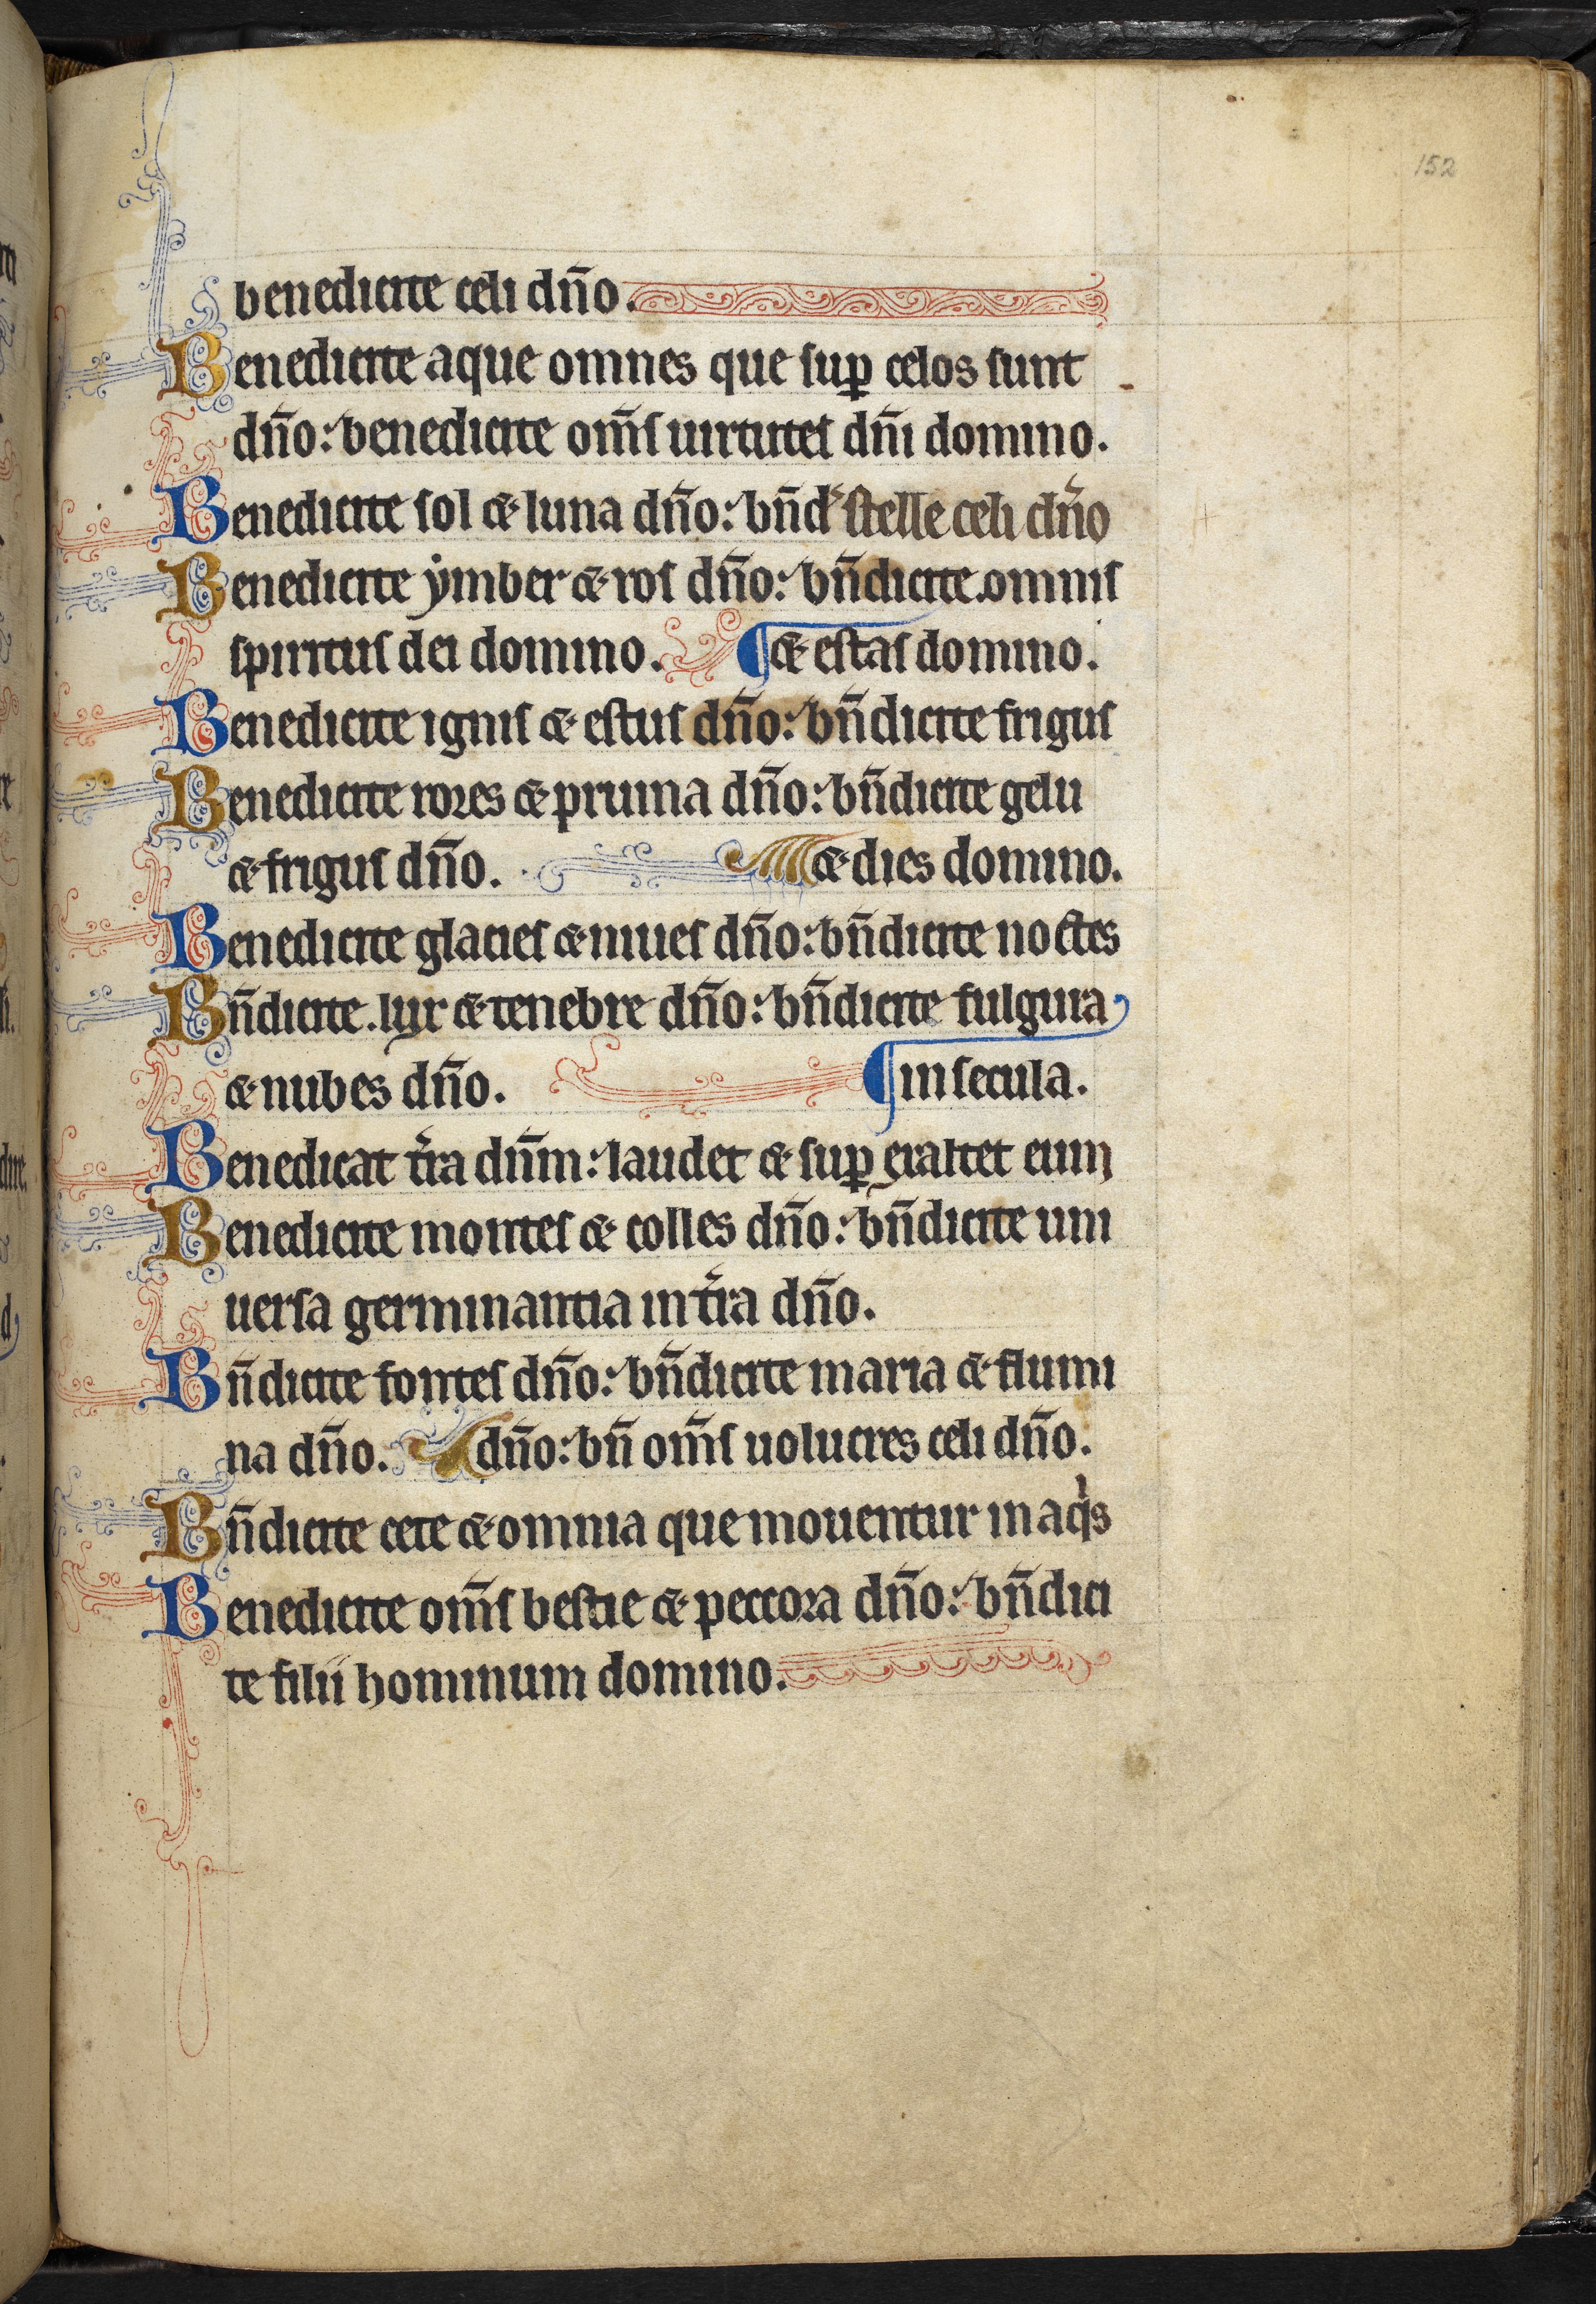 152
benedicite celi dño.
Benedicite aque omnes que suꝑ celos sunt
dño: benedicite om̃s uirtutes dñi domino.
Benedicite sol & luna dño: bñd' stelle celi dño
Benedicite ymber & ros dño: bñdicite omnis
spiritus dei domino. ¶ & estas domino.
Benedicite ignis & estus dño: bñdicite frigus
Benedicite rores & pruina dño: bñdicite gelu
& frigus dño. & dies domino.
Benedicite glacies & niues dño: bñdicite noctes
Bñdicite lux & tenebre dño: bñdicite fulgura
& nubes dño. ¶ in secula.
Benedicat t̃ra dñm: laudet & suꝑ exaltet eum
Benedicite montes & colles dño: bñdicite uni
uersa germinantia in t̃ra dño.
Bñdicite fontes dño: bñdicite maria & flumi
na dño. dño: bñ om̃s uolucres celi dño.
Bñdicite cete & omnia que mouentur in aqͥs
Benedicite om̃s bestie & peccora dño: bñdici
te filii hominum domino.